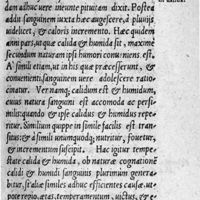 dam adhuc uere ineunte pituitam dixit. Postea
addit sanguinem iuxta hæc augescere, à pluuijs
uidelicet, & caloris incremento. Hæc quidem
anni pars, utquæ calida & humida sit, maximè
secundum naturam ipsi humori conueniens est.
A' simili etiam, ut in his quæ præcesserunt, &
conuenienti, sanguinem uere adolescere ratio-
cinatur. Ver namq; calidum est & humidum,
cuius natura sanguini est accomoda ac persi-
milis: quando & ipse calidus & humidus repe-
ritur. Similium quippe in simile facilis est tran-
situs: & à simili unumquodq; nutritur, fouetur,
& incrementum suscipit. Hæc igitur tempe-
state calida & humida, ob naturæ cognationē
calidi & humidi sanguinis plurimum genera-
bitur, statiæ similes adhuc efficientes causæ, ut-
pote regio, ætas, temperamentum, uictus, & e-